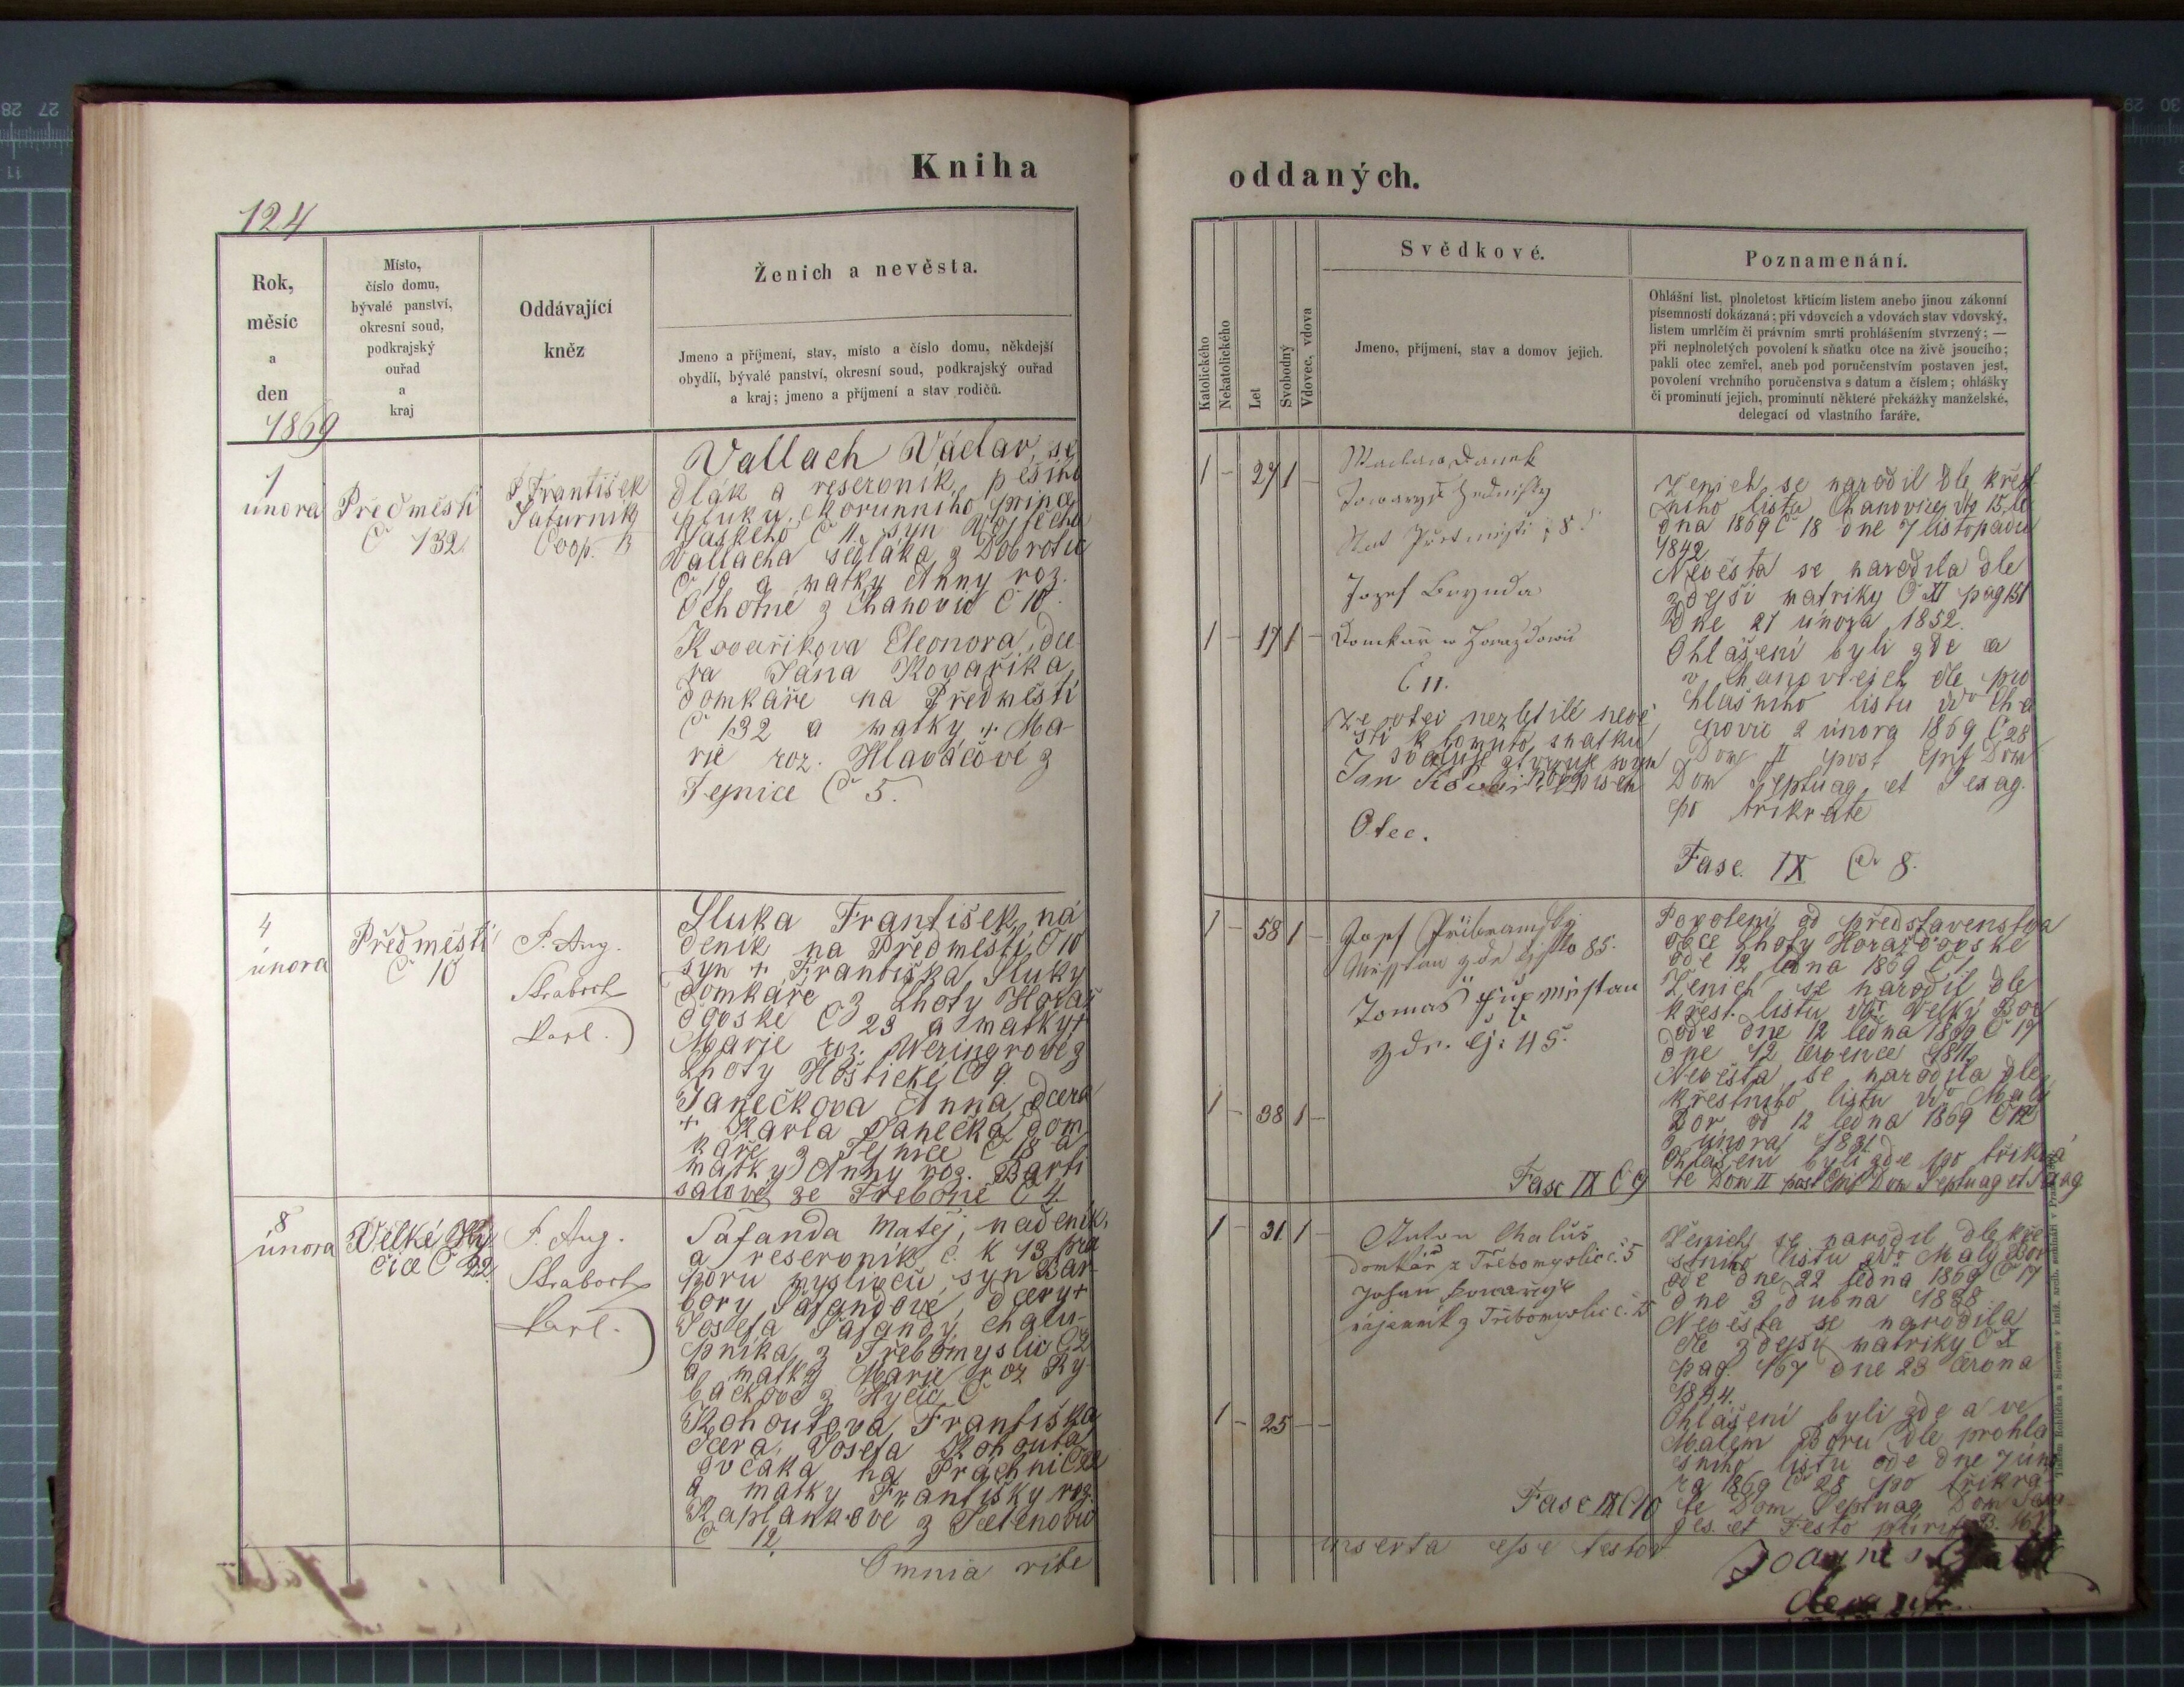 Kniha
oddaných.
124
Rok,
měsíc
a
den
1869
Místo,
číslo domu,
bývalé panství,
okresní soud,
podkrajský
ouřad
a
kraj
Oddávající
kněz
Ženich a nevěsta.
Jmeno a příjmení, stav, místo a číslo domu, někdejší
obydlí, bývalé panství, okresní soud, podkrajský ouřad
a kraj; jmeno a příjmení a stav rodičů.
1
února
Předměstí
Č 132
P. František
Saturnik
Coop.
Vallach Václav, se
dlák a reservník pěšího
pluku korunního prince
Saského Č 11. syn Vojtěcha
Vallacha sedláka z Dobrotic
Č 19 a matky Anny roz.
Ochotné z Chanovic Č 10.
Kovaříkova Eleonora, dce
ra Jána Kovaříka,
domkáře na Předměstí
Č 132 a matky + Ma-
rie roz. Hlaváčové z
Tejnice Č 5.
4
února
Předměstí
Č 10
P. Aug.
Straboch
Karl.
Sluka František, ná
deník na Předměstí Č 10
syn + Františka Sluky
domkáře z Lhoty Horaž
ďovské Č 23 a matky +
Marie roz. Weringrové z
Lhoty Hoštické Č 9
Janečkova Anna, dcera
+ Karla Janečka, dom
káře z Tejnice Č 18 a
matky Anny roz. Barti
salové ze Třeboně Č 4
8
února
Velké Hy
čice Č 22
P. Aug.
Straboch
Karl.
Šafanda Matěj, nadeník,
a reservník c. k 13 pra
poru myslivců, syn Bar
bory Šafandové, dcery +
Josefa Šafandy, chalu-
pníka z Třebomyslic Č 2
a matky Marie roz Ry
bačkové z Hyčic Č
Kohoutova Františka
dcera Josefa Kohouta
ovčáka na Práchni Č 22
a matky Františky roz.
Kaplankové z
Č 12.
Omnia rite
Katolického
Nekatolického
Let
Svobodný
Vdovec, vdova
Svědkové.
Jmeno, příjmení, stav a domov jejich.
Poznamenání.
Ohlášní list, plnoletost křticím listem anebo jinou zákonní
písemností dokázaná; při vdovcích a vdovách stav vdovský,
listem umrlčím či právním smrti prohlášením stvrzený; —
při neplnoletých povolení k sňatku otce na živě jsoucího;
pakli otec zemřel, aneb pod poručenstvím postaven jest,
povolení vrchního poručenstva s datum a číslem; ohlášky
či prominutí jejich, prominutí některé překážky manželské,
delegací od vlastního faráře.
1 - 27 1 -
Danek
Jozef Brynda
1 - 17 1 -
Domkař
Č 11.
že otci nezletilé nevě
sti k tomuto snatku
svoluje stvrzuje svým
Jan Kovařík podpisem
Otec.
Ženich se narodil dle křest
ního listu Chanovice ddo 15 le
dna 1869 Č 18 dne 7 listopadu
1842
Nevěsta se narodila dle
zdejší matriky Č XI pag 131
Dne 21 února 1852.
Ohlášeni byli zde a
v Chanovicích dle pro
hlašního listu ddo Cha
novic 2 února 1869 Č 28
Dom II post Epif Dom
Dom Septuag. et Sexag.
po třikráte
Fasc. IX Č 8.
1 - 58 1 -
Jozef Přibramský
Měštan zde číslo 85.
Tomaš Měštan
zde. čj: 45.
1 - 38 1 -
Fasc IX Č 9
Povolení od představenstva
obce Lhoty Horažďovské
dde 12 ledna 1869 Č 1
Ženich se narodil dle
křest. listu ddo Velký Bor
dde dne 12 ledna 1869 Č 19
dne 12 července 1811
Nevěsta se narodila dle
křestního listu ddo Malý
Bor dd 12 ledna 1869 Č 12
3 února 1831
Ohlášeni byli zde po třikrá
te Dom II post Epif Dom Septuag et Sexag
1 - 31 1 -
Anton Chaluš
domkář z Třebomyslic č. 5
Johan Kovařyk
nájemník z Třebomyslic č. 25
1 - 25 - -
Fasc IX Č 10
Ženich se narodil dle kře
stního listu ddo Malý Bor
dde dne 22 ledna 1869 Č 17
dne 3 dubna 1838.
Nevěsta se narodila
dle zdejší matriky Č X
pag. 167 dne 23 června
1844.
Ohlášeni byli zde a ve
Malém Boru dle prohla
šního listu dde dne 7 úno
ra 1869 Č 28 po třikrá
te Dom Septuag Dom Sexa-
ges. et Festo purif B. M. V.
inserta esse testor
Joannes